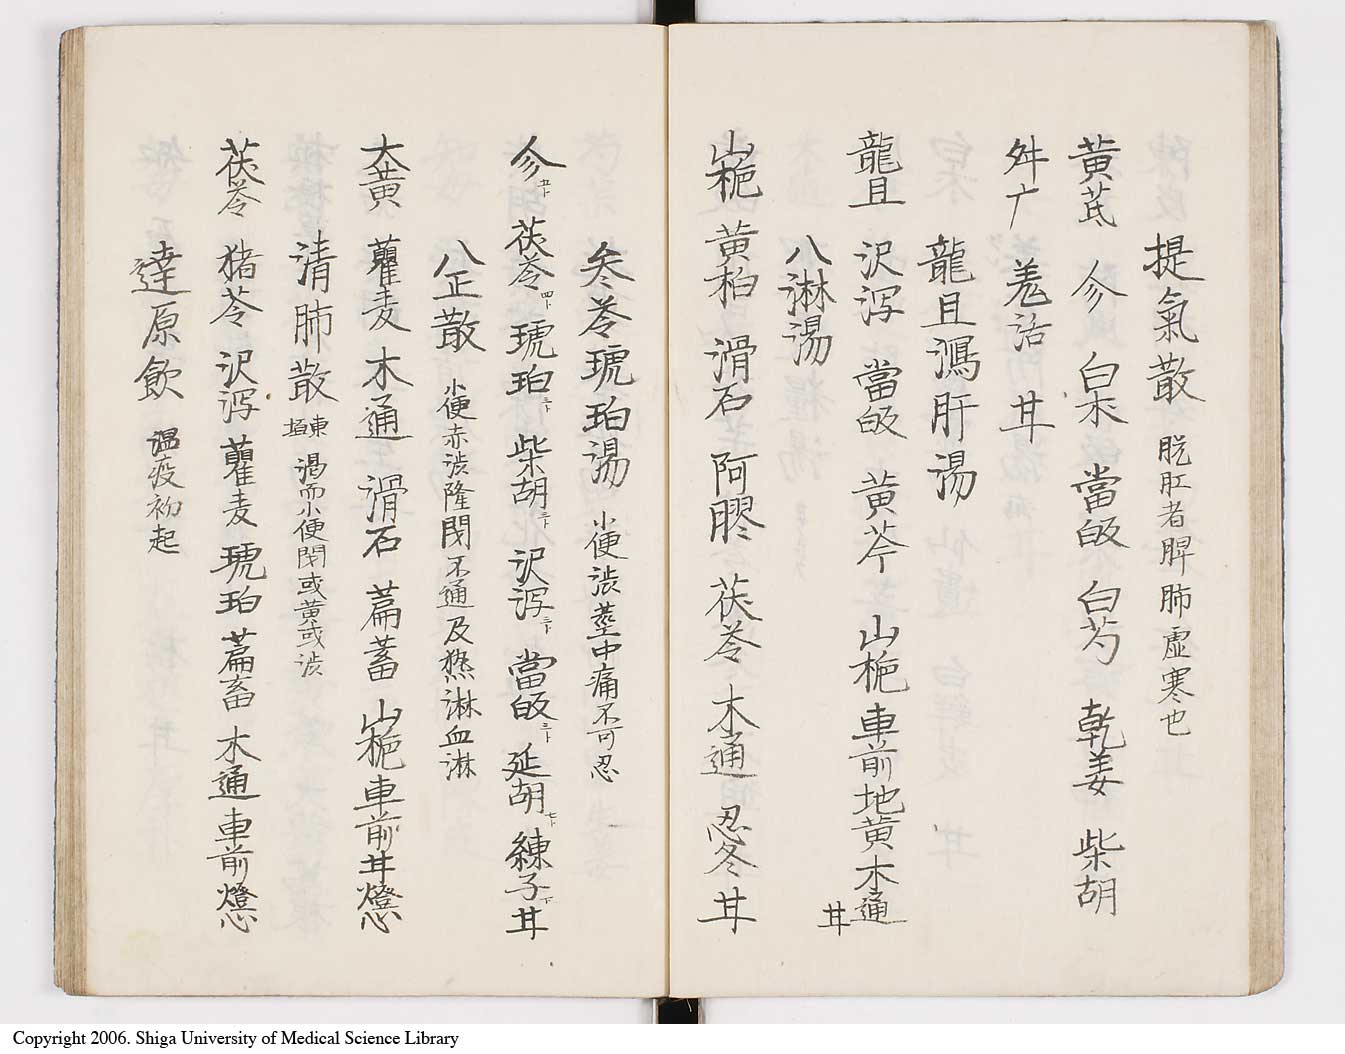 提氣散 脱肛者脾肺虚寒也
黄芪 參 白朮 當皈 白芍 乾姜 柴胡
升广 羌活 甘
龍且瀉肝湯
龍且 沢泻 當皈 黄芩 山栀 車前 地黄 木通
甘
八淋湯
山栀 黄柏 滑石 阿膠 茯苓 木通 忍冬 甘
參苓琥珀湯 小便渋莖中痛不可忍
參 五卜 茯苓 四卜 琥珀 三卜 柴胡 三卜 沢泻 三卜 當皈 三卜 延胡 七卜 練子 一卜 甘
八正散 小便赤渋隆閉不通及熱淋血淋
大黄 瞿麦 木通 滑石 萹蓄 山栀 車前 甘 燈心
清肺散 東垣 渇而小便閉或黄或渋
茯苓 猪苓 沢泻 瞿麦 琥珀 萹畜 木通 車前 燈心
達原飲 温疫初起
Copyright 2006. Shiga University of Medical Science Library